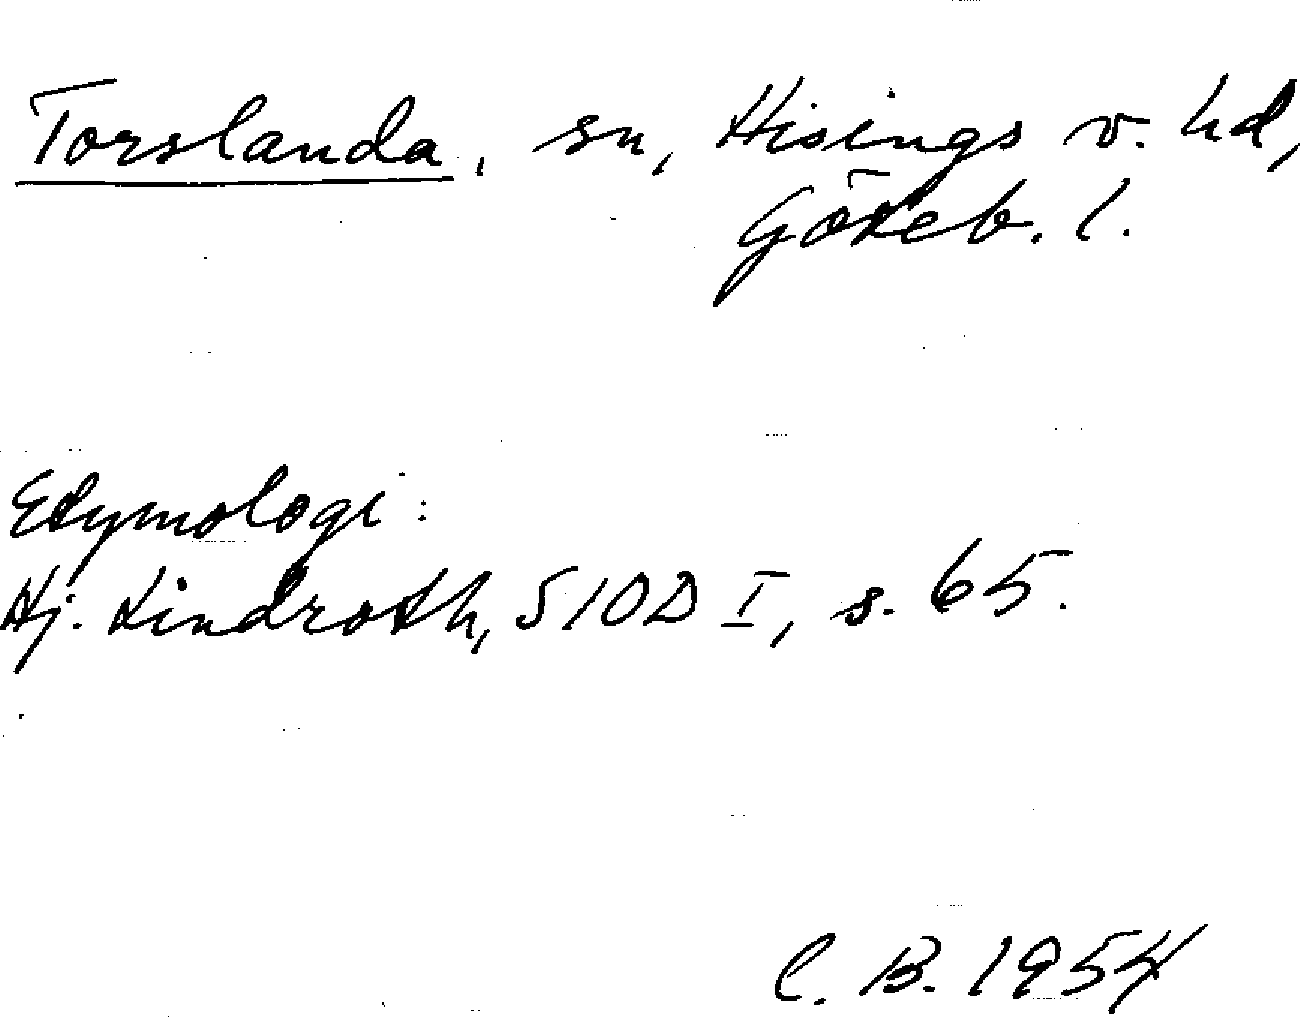 Torslanda, sn, Hisings v. hd,
Göteb. l.
Etymologi:
Hj. Lindroth, SIOD I, s. 65.
C. B. 1954